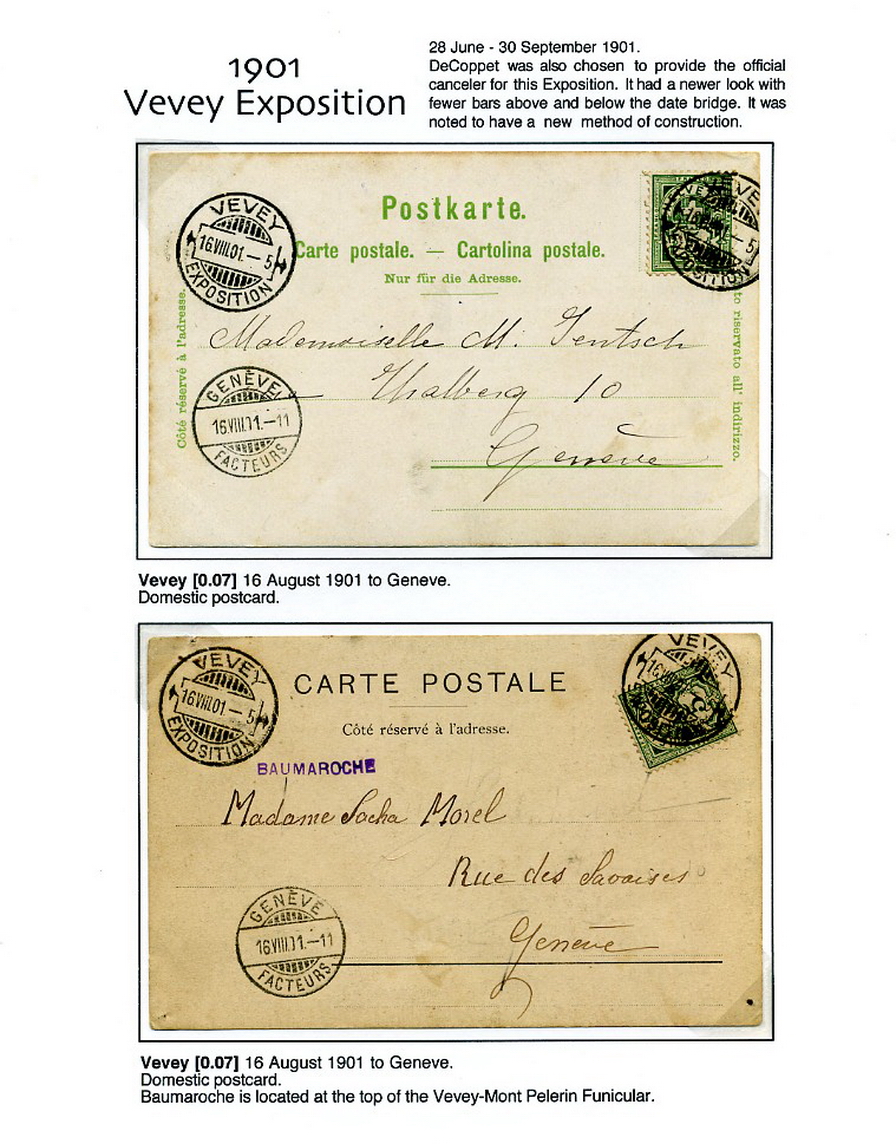 1901
Vevey Exposition
28 June - 30 September 1901.
DeCoppet was also chosen to provide the official
canceler for this Exposition. It had a newer look with
fewer bars above and below the date bridge. It was
noted to have a new method of construction.
VEVEY
16.VIII.01.—5
EXPOSITION
Postkarte.
Carte postale. — Cartolina postale.
Nur für die Adresse.
VEVEY
16
EXPOSITION
Côté réservé à l'adresse.
to riservato all' indirizzo.
Mademoiselle M. Jentsch
Thalberg 10
Genève
GENÈVE
16.VIII.01.—11
FACTEURS
Vevey [0.07] 16 August 1901 to Geneve.
Domestic postcard.
VEVEY
16.VIII.01—5
EXPOSITION
CARTE POSTALE
Côté réservé à l'adresse.
VEVEY
16.VIII
BAUMAROCHE
Madame Sacha Morel
Rue des Savoises
Genève
GENÈVE
16.VIII.01.—11
FACTEURS
Vevey [0.07] 16 August 1901 to Geneve.
Domestic postcard.
Baumaroche is located at the top of the Vevey-Mont Pelerin Funicular.